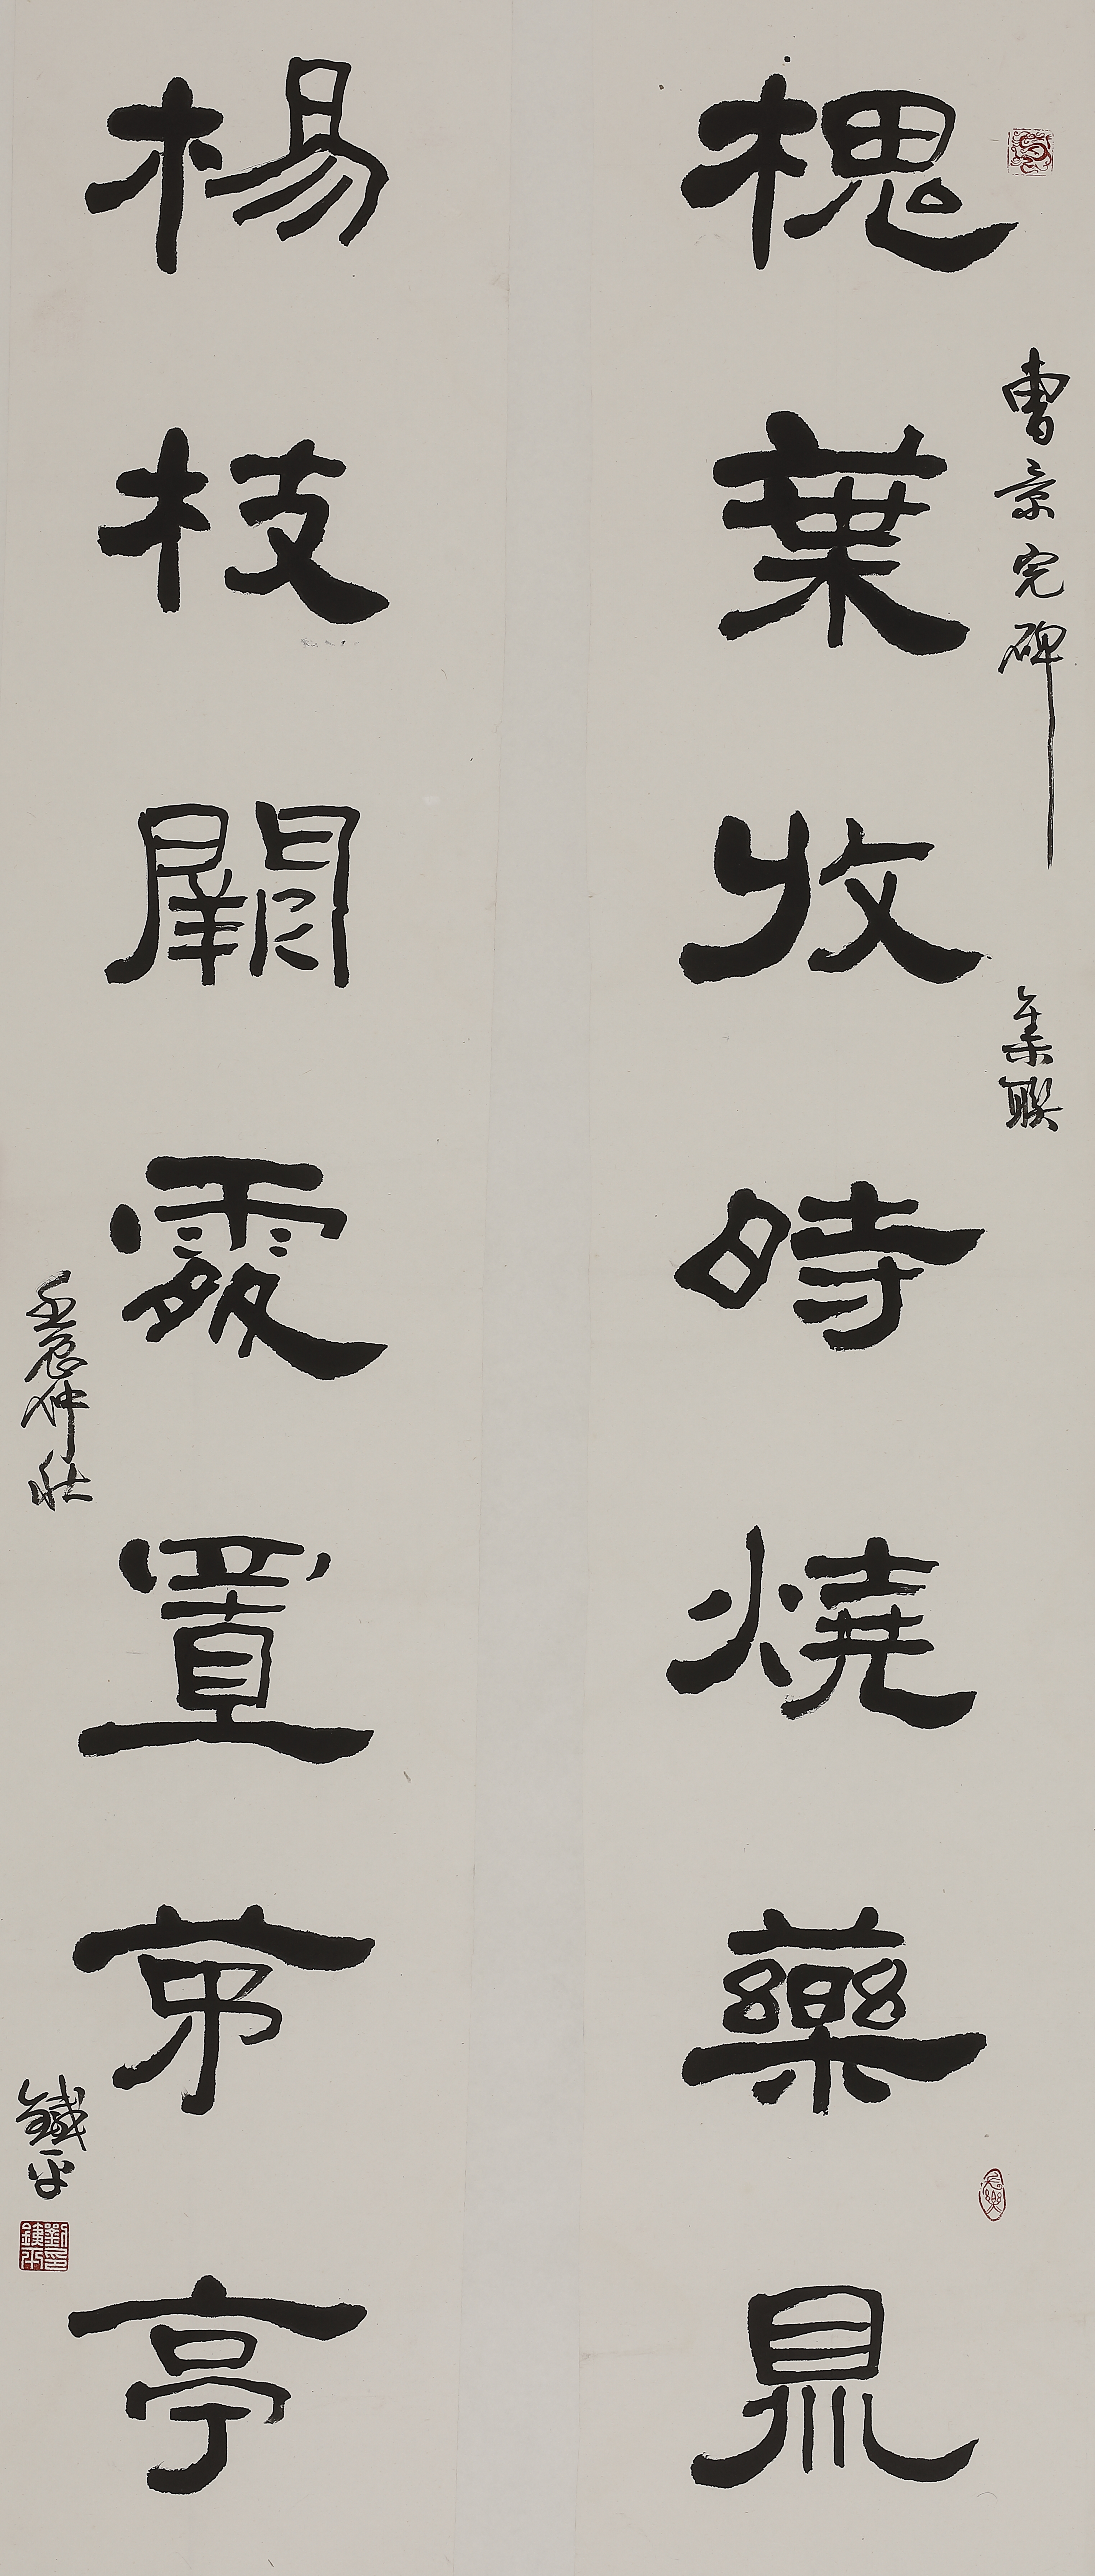 曹景完碑 集聯
槐葉收時燒藥鼎
楊枝闢處置茅亭
壬辰仲秋 鐵平
劉鐵平印